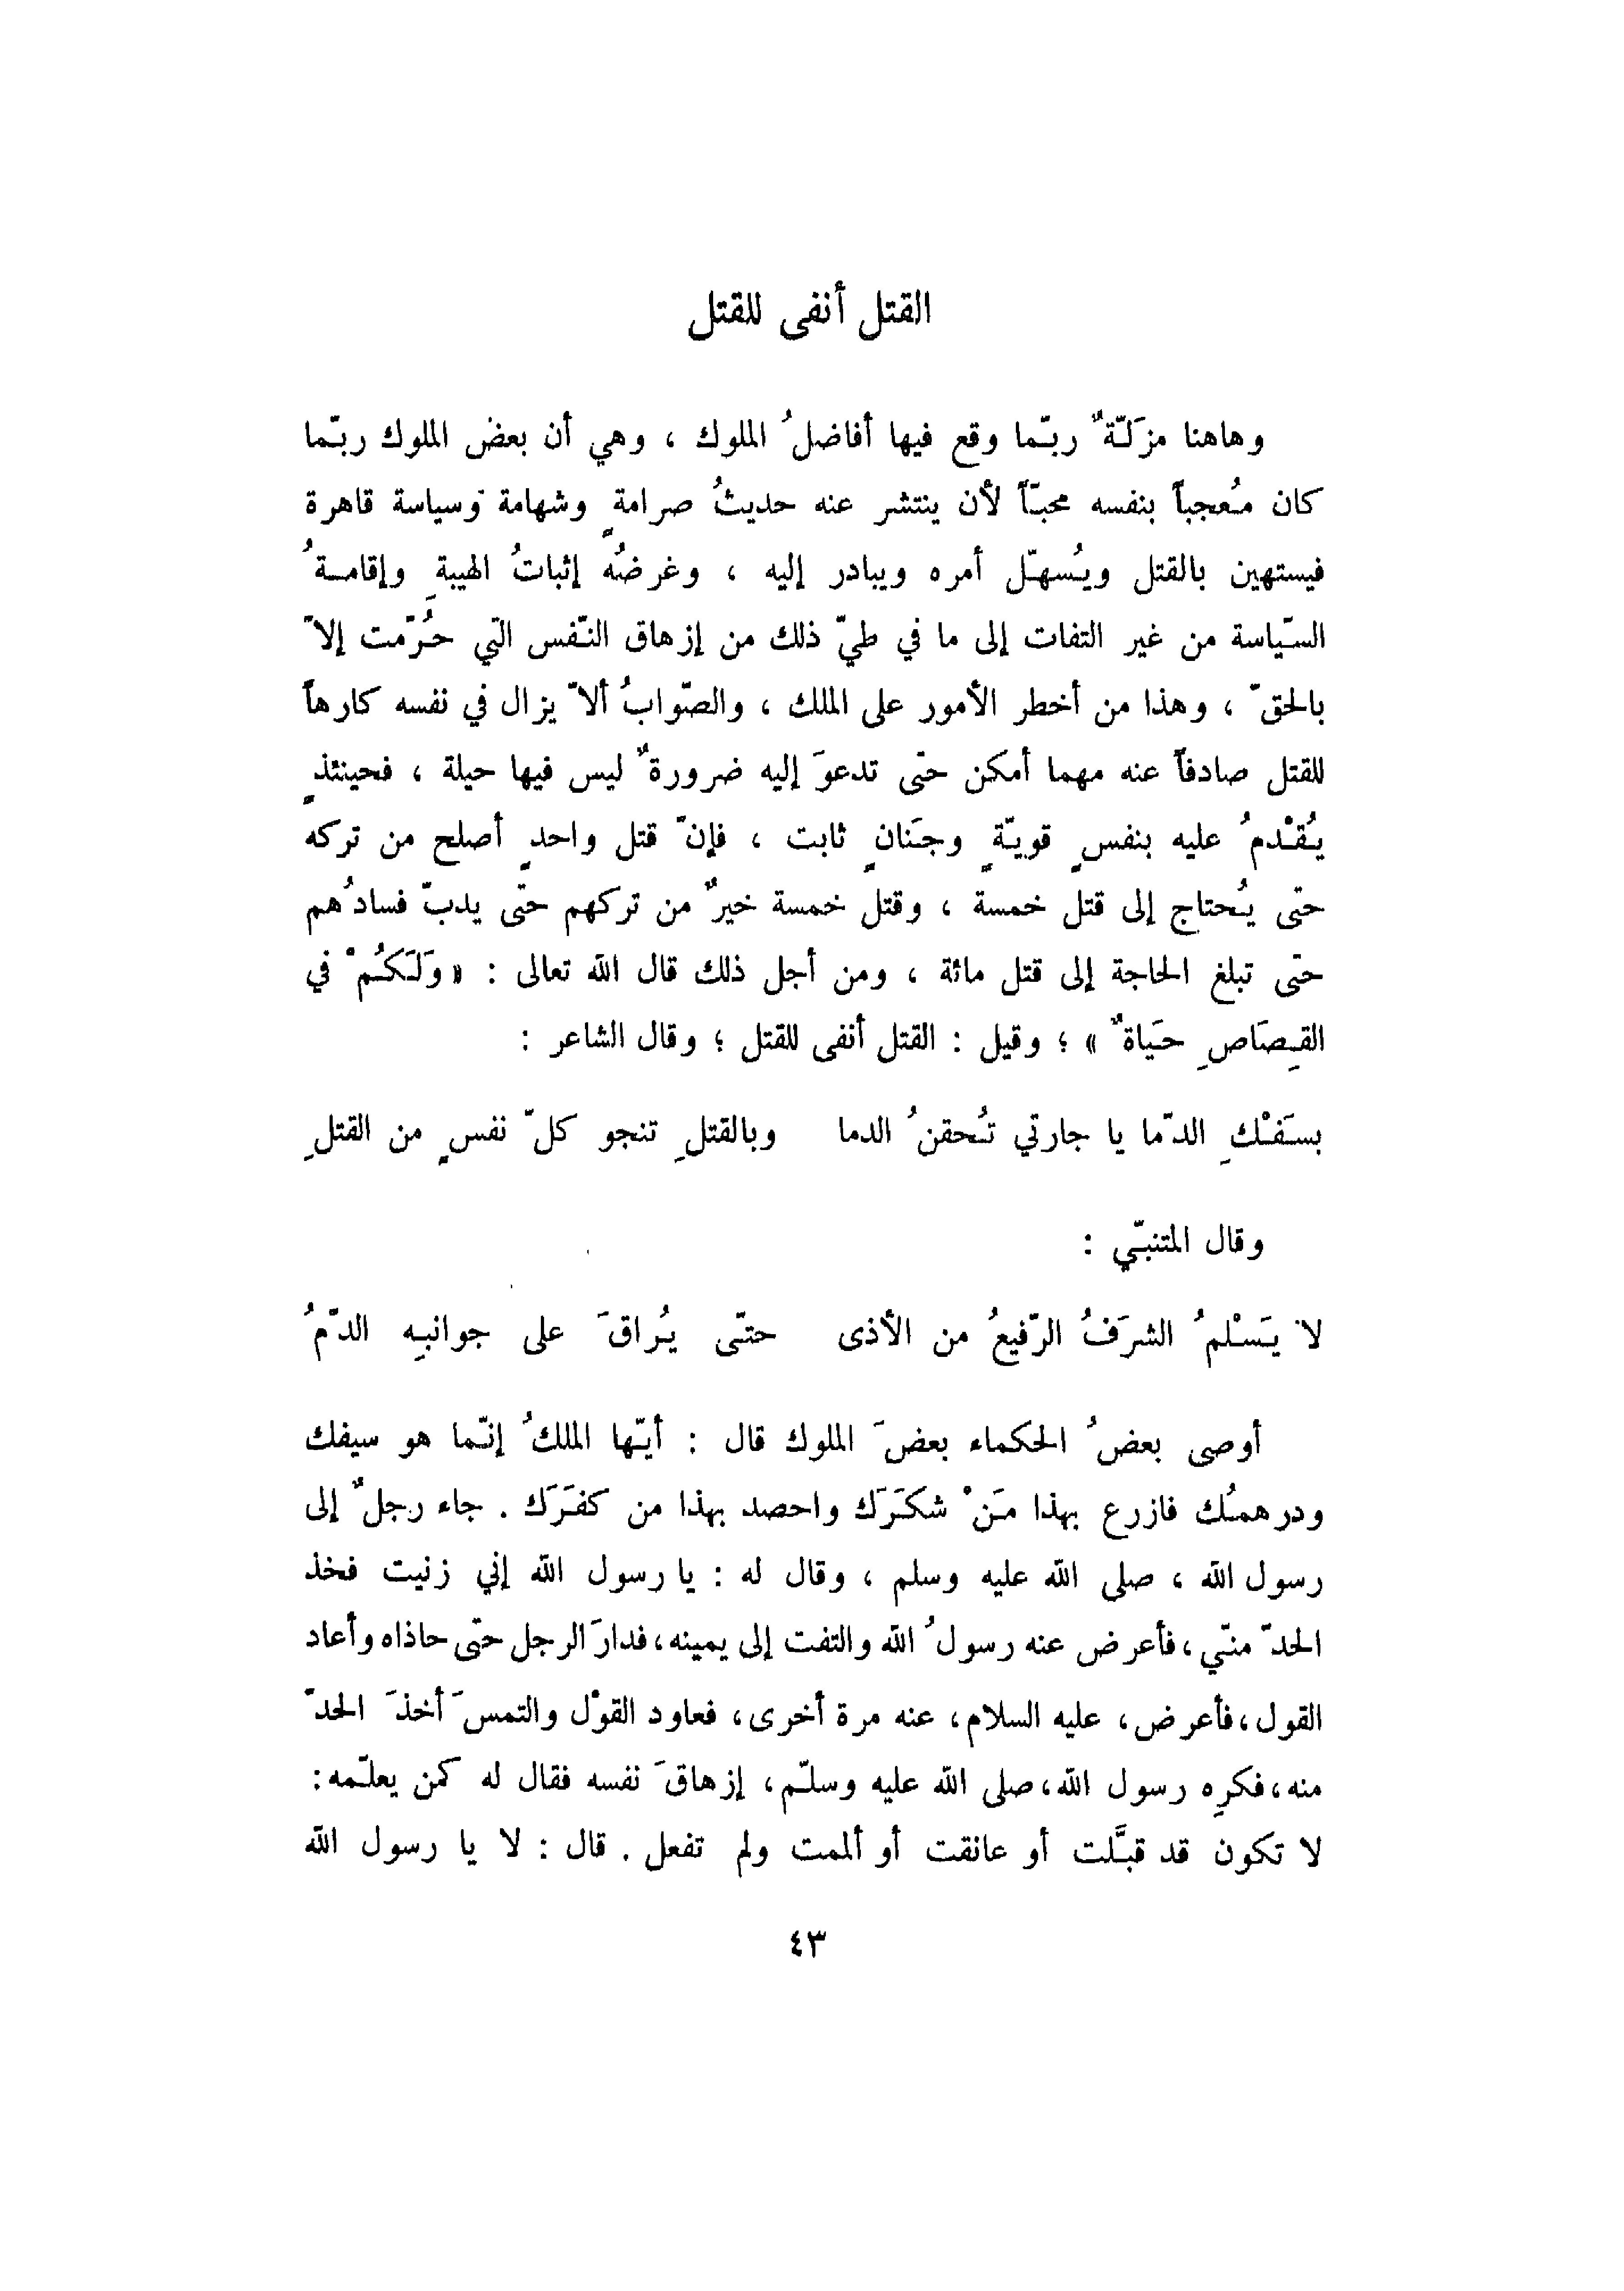 القتل أنفى للقتل
وهاهنا مزَلّةٌ ربّما وقع فيها أفاضلُ الملوك ، وهي أن بعض الملوك ربّما
كان مُعجباً بنفسه محبّاً لأن ينتشر عنه حديثُ صرامةٍ وشهامة وسياسة قاهرة
فيستهين بالقتل ويُسهّل أمره ويبادر إليه ، وغرضُه إثباتُ الهيبةِ وإقامةُ
السّياسة من غير التفات إلى ما في طيّ ذلك من إزهاق النّفس التي حُرّمت إلاّ
بالحقّ ، وهذا من أخطر الأمور على الملك ، والصّوابُ ألاّ يزال في نفسه كارهاً
للقتل صادفاً عنه مهما أمكن حتّى تدعوَ إليه ضرورةٌ ليس فيها حيلة ، فحينئذٍ
يُقْدمُ عليه بنفسٍ قويّةٍ وجَنانٍ ثابت ، فإنّ قتل واحدٍ أصلح من تركه
حتى يُحتاج إلى قتل خمسة ، وقتل خمسة خيرٌ من تركهم حتّى يدبّ فسادُهم
حتّى تبلغ الحاجة إلى قتل مائة ، ومن أجل ذلك قال الله تعالى : « وَلَكُمْ في
القِصَاصِ حَياةٌ » ؛ وقيل : القتل أنفى للقتل ؛ وقال الشاعر :
بسَفْكِ الدّما يا جارتي تُحقنُ الدما وبالقتلِ تنجو كلّ نفسٍ من القتلِ
وقال المتنبّي :
لا يَسْلمُ الشرَفُ الرّفيعُ من الأذى حتّى يُراقَ على جوانبِه الدّمُ
أوصى بعضُ الحكماء بعضَ الملوك قال : أيّها الملكُ إنّما هو سيفك
ودرهمُك فازرع بهذا مَنْ شكَرَك واحصد بهذا من كفَرَك . جاء رجلٌ إلى
رسول الله ، صلى الله عليه وسلم ، وقال له : يا رسول الله إني زنيت فخذ
الحدّ منّي ، فأعرض عنه رسولُ الله والتفت إلى يمينه ، فدارَ الرجل حتّى حاذاه وأعاد
القول ، فأعرض ، عليه السلام ، عنه مرة أخرى ، فعاود القوْل والتمسَ أخذَ الحدّ
منه ، فكرِه رسول الله ، صلى الله عليه وسلّم ، إزهاقَ نفسه فقال له كمن يعلّمه :
لا تكون قد قبَّلت أو عانقت أو ألممت ولم تفعل . قال : لا يا رسول الله
٤٣